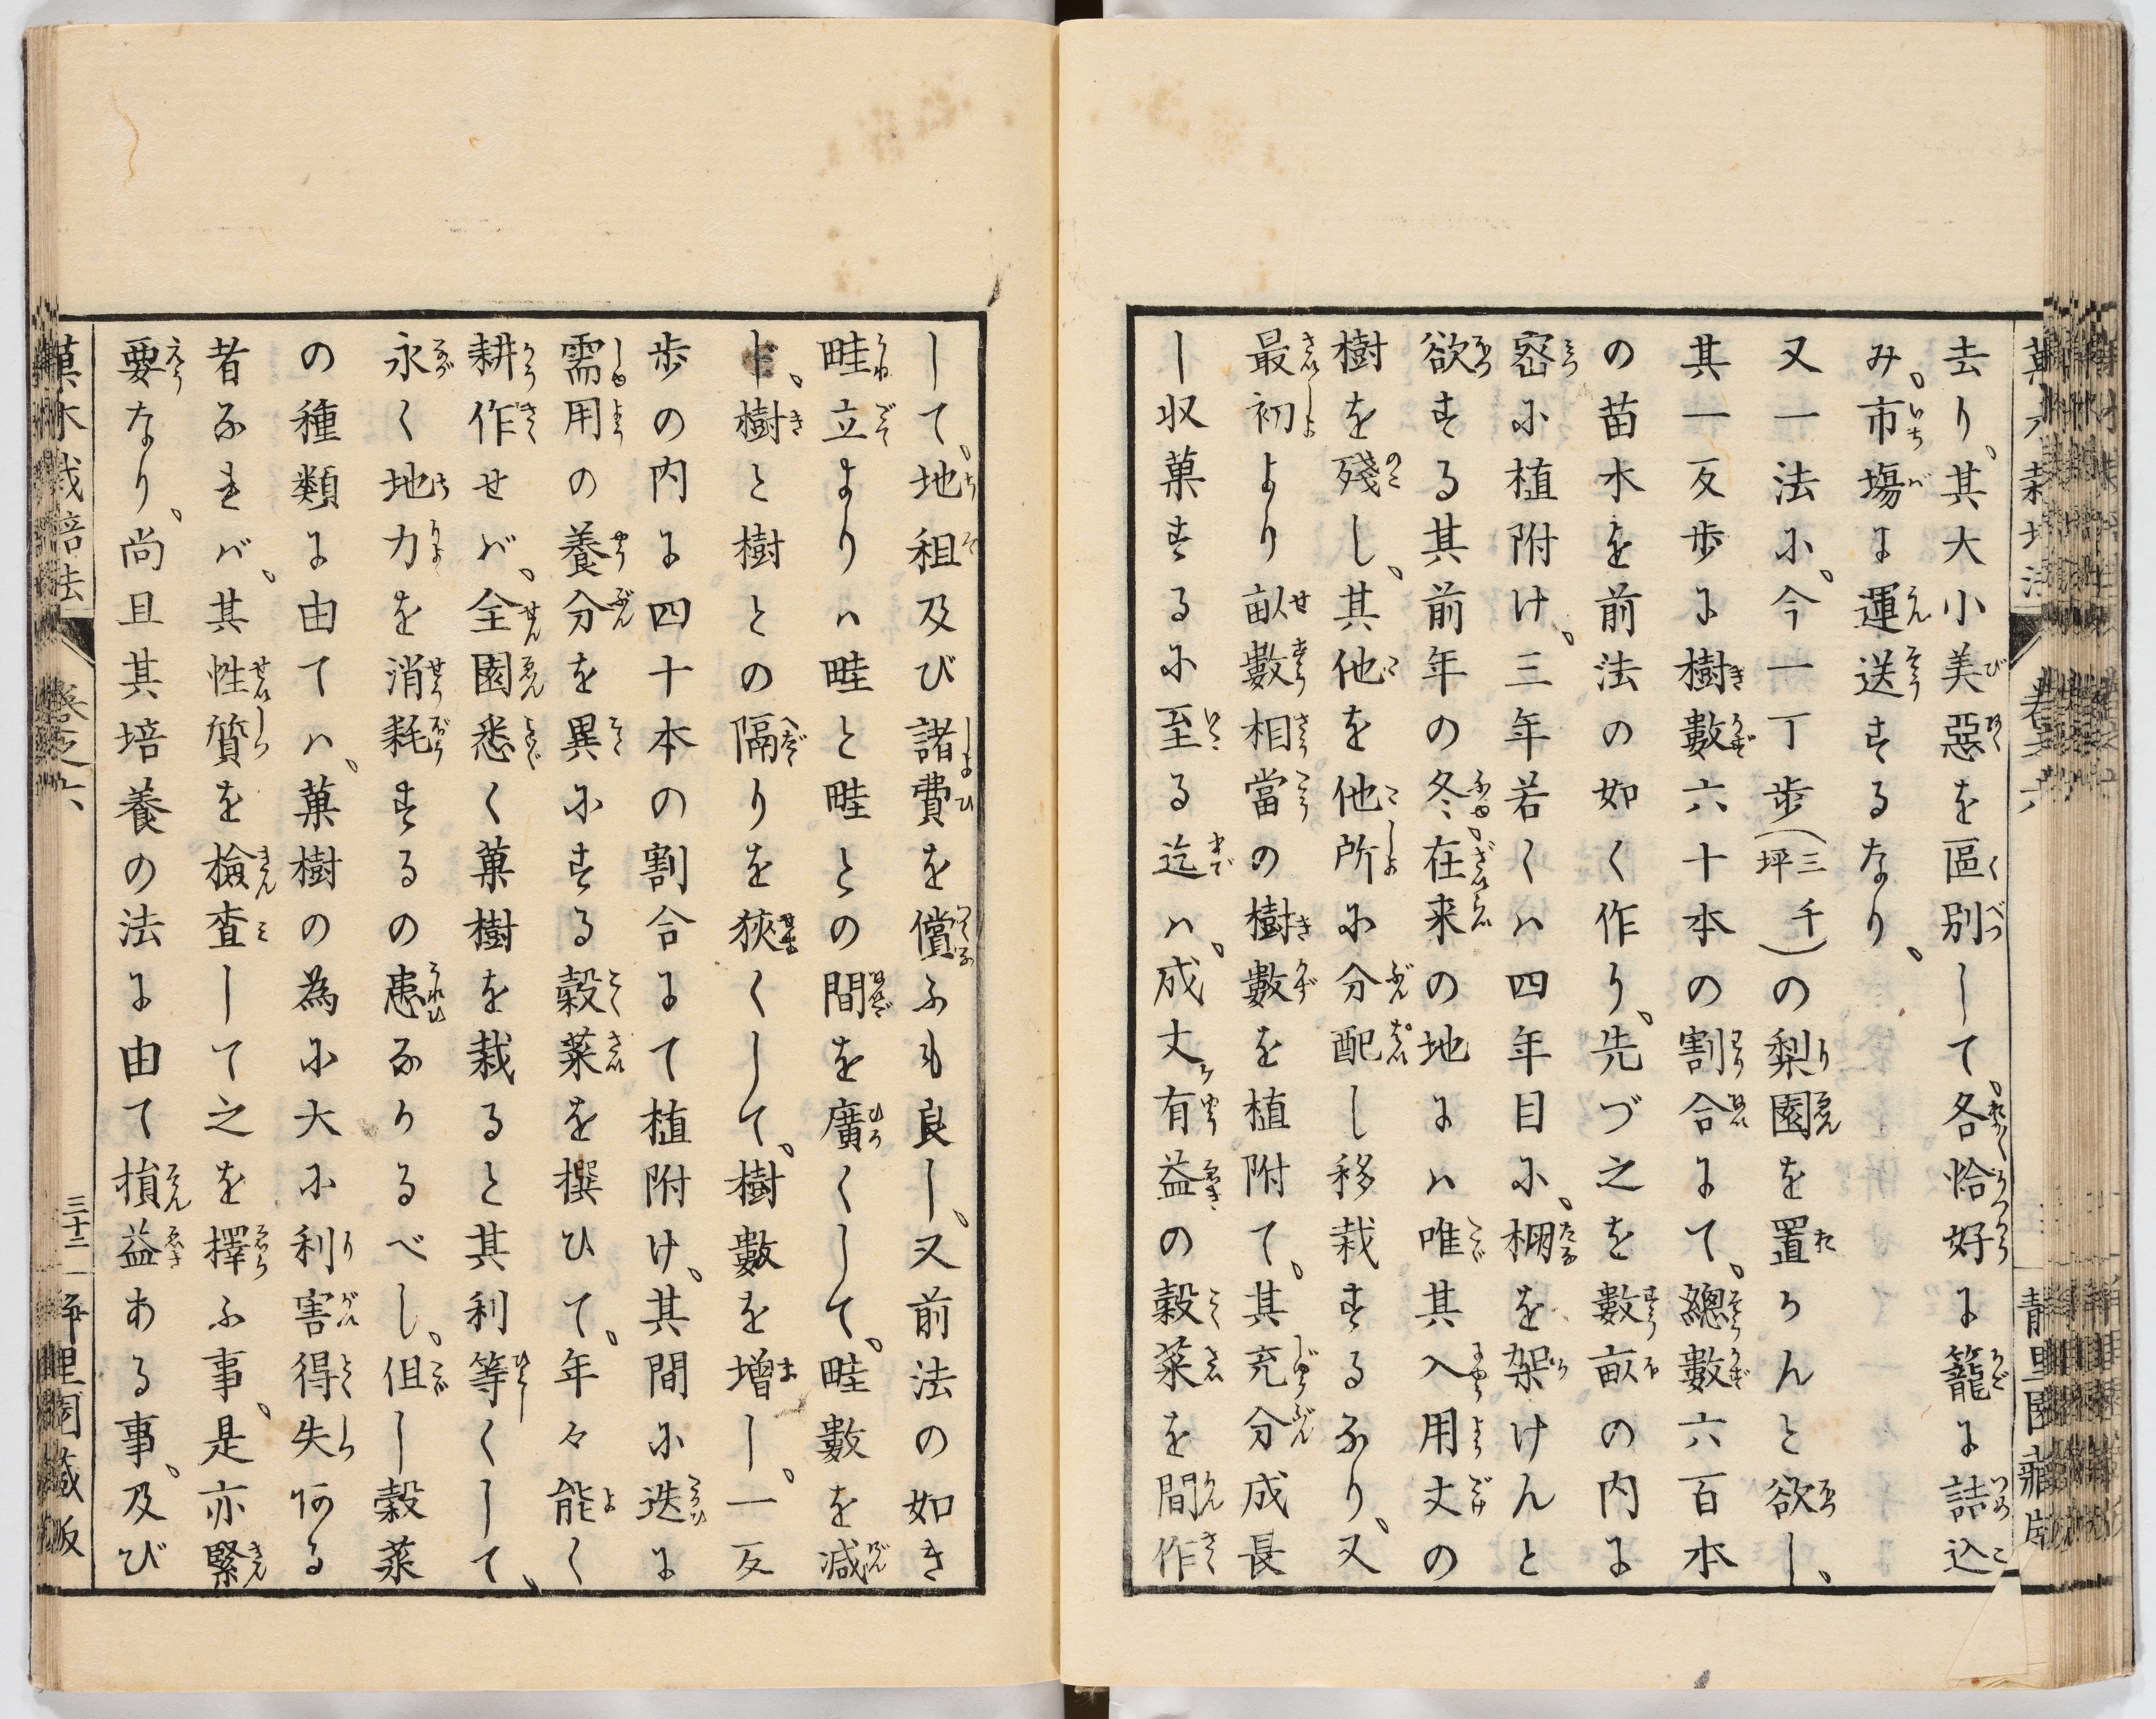 去り、其大小美惡を區別して、各恰好に籠に詰込
み、市塲に運送するなり、
又一法に、今一丁歩(三千坪)の梨園を置かんと欲し、
其一反歩に樹數六十本の割合にて、總數六百本
の苗木を前法の如く作り、先づ之を數畝の内に
密に植附け、三年若くハ四年目に、棚を架けんと
欲する其前年の冬、在来の地にハ唯其入用丈の
樹を殘し、其他を他所に分配し移栽するなり、又
最初より畝數相當の樹數を植附て、其充分成長
し収菓するに至る迄ハ、成丈ケ有益の穀菜を間作
して、地租及び諸費を償ふも良し、又前法の如き
畦立よりハ畦と畦との間を廣くして、畦數を減
じ、樹と樹との隔りを狹くして、樹數を增し、一反
歩の内に四十本の割合にて植附け、其間に迭に
需用の養分を異にする穀菜を撰ひて、年々能く
耕作せバ、全園悉く菓樹を栽ると其利等くして、
永く地力を消耗するの患なかるべし、但し穀菜
の種類に由てハ、菓樹の為に大に利害得失ある
者なれバ、其性質を檢査して之を擇ふ事、是亦緊
要なり、尚且其培養の法に由て損益ある事、及び
菓木栽培法 卷之六 三十二 静里園藏版